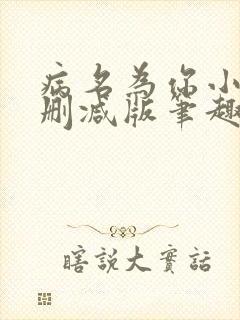 病名為你小
删减版筆趣
瞎說大實話